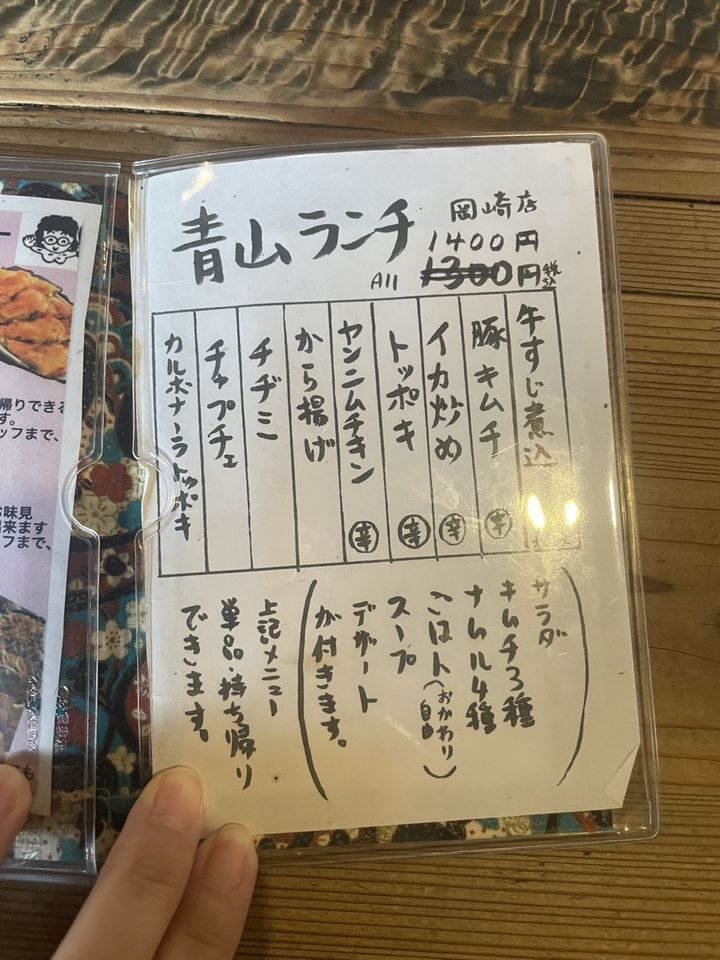 青山ランチ
岡崎店
1400円
All 1300円 税込
牛すじ煮込
豚キムチ 辛
イカ炒め 辛
トッポキ 辛
ヤンニムチキン 辛
から揚げ
チヂミ
チャプチェ
カルボナーラトッポキ
サラダ
キムチ3種
ナムル4種
ごはん(おかわり自由)
スープ
デザート
が付きます。
上記メニュー
単品・持ち帰り
できます。
帰りできる
す。
ッフまで、
お味見
出来ます
フまで、